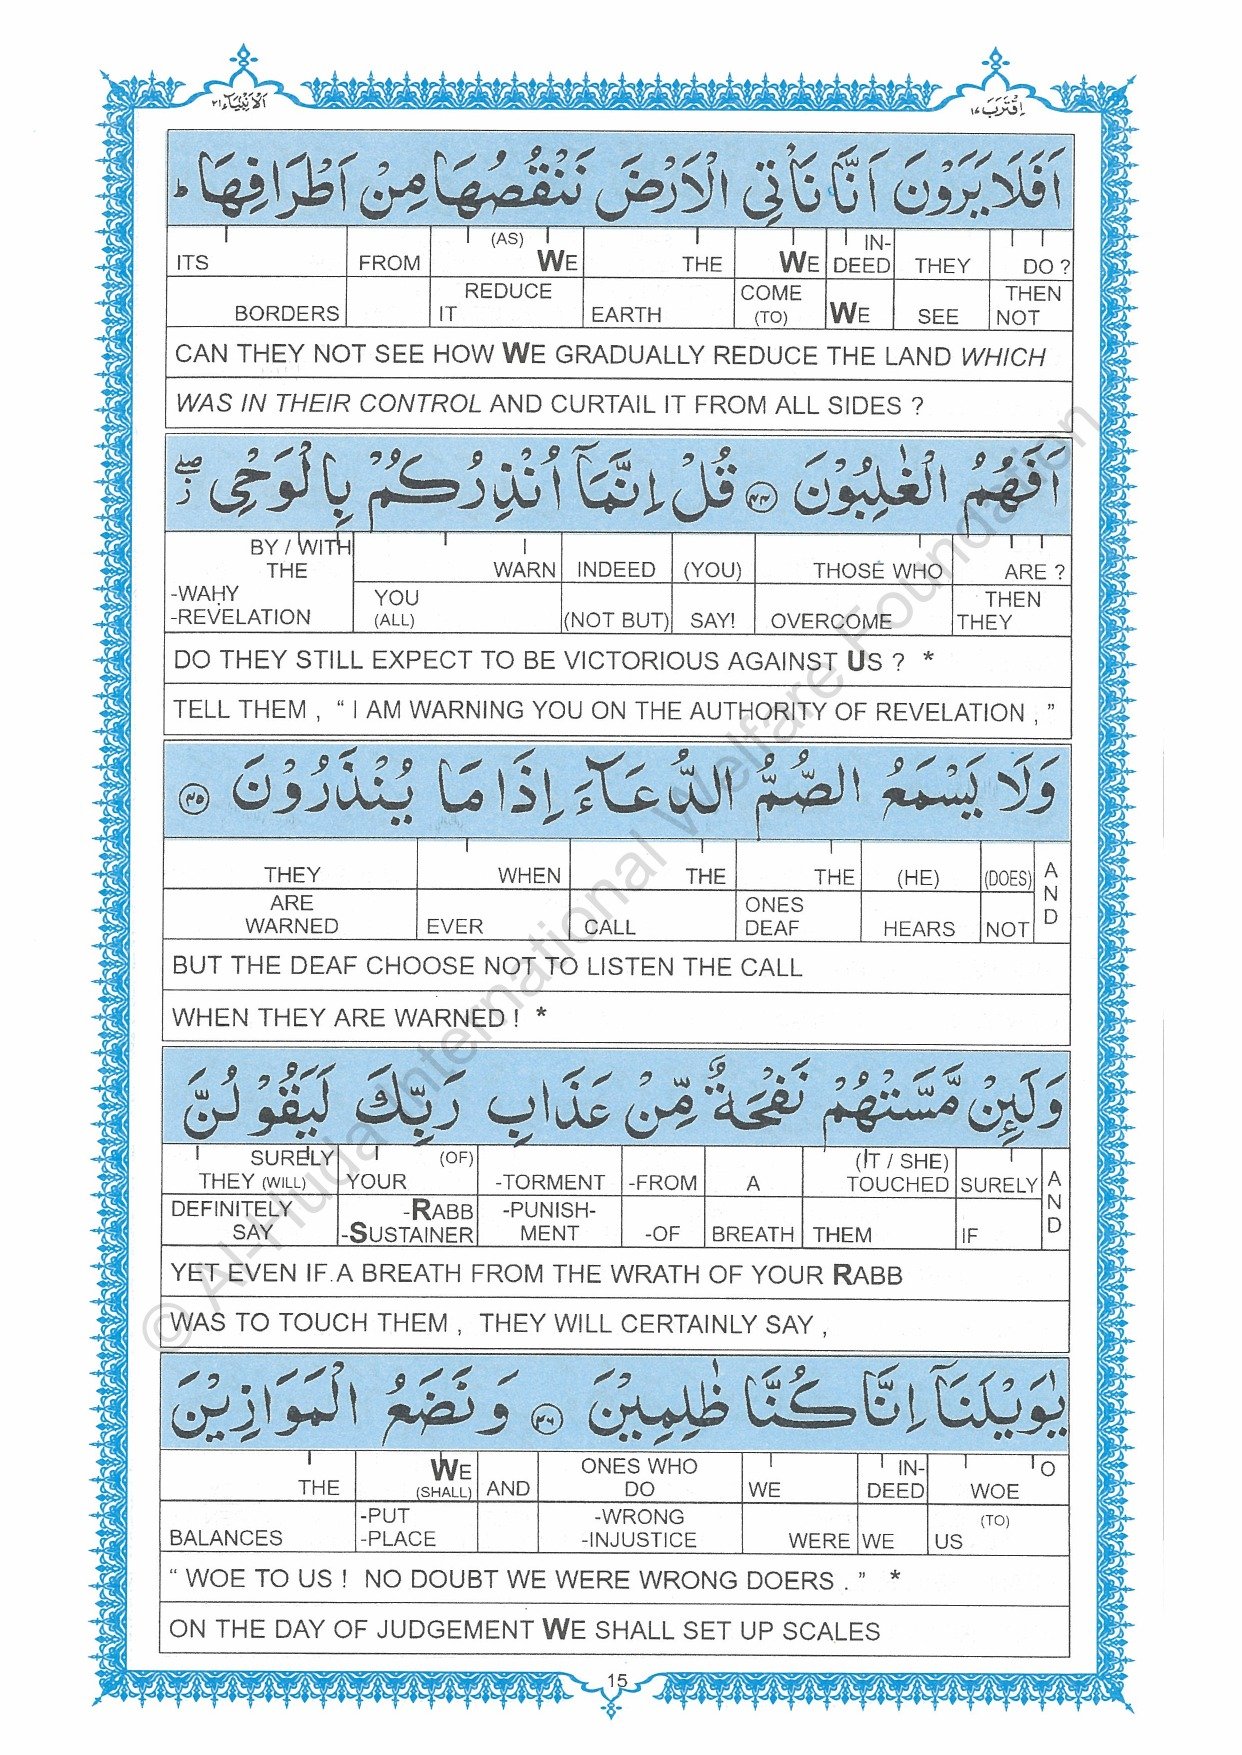 اَلْاَنْبِیَآء ٢١
اِقْتَرَبَ ١٧
اَفَلَا یَرَوْنَ اَنَّا نَاْتِی الْاَرْضَ نَنْقُصُهَا مِنْ اَطْرَافِهَا ؕ
ITS FROM (AS) WE THE WE IN-DEED THEY DO ?
BORDERS REDUCE IT EARTH COME (TO) WE SEE THEN NOT
CAN THEY NOT SEE HOW WE GRADUALLY REDUCE THE LAND WHICH
WAS IN THEIR CONTROL AND CURTAIL IT FROM ALL SIDES ?
اَفَهُمُ الْغٰلِبُوْنَ ﴿۴۴﴾ قُلْ اِنَّمَاۤ اُنْذِرُكُمْ بِالْوَحْیِ ۖ ز
BY / WITH THE WARN INDEED (YOU) THOSE WHO ARE ?
-WAHY -REVELATION YOU (ALL) (NOT BUT) SAY! OVERCOME THEN THEY
DO THEY STILL EXPECT TO BE VICTORIOUS AGAINST US ? *
TELL THEM , “ I AM WARNING YOU ON THE AUTHORITY OF REVELATION , ”
وَلَا یَسْمَعُ الصُّمُّ الدُّعَآءَ اِذَا مَا یُنْذَرُوْنَ ﴿۴۵﴾
THEY WHEN THE THE (HE) (DOES) AND
ARE WARNED EVER CALL ONES DEAF HEARS NOT
BUT THE DEAF CHOOSE NOT TO LISTEN THE CALL
WHEN THEY ARE WARNED ! *
وَلَئِنْ مَّسَّتْهُمْ نَفْحَةٌ مِّنْ عَذَابِ رَبِّكَ لَیَقُوْلُنَّ
SURELY THEY (WILL) YOUR (OF) -TORMENT -FROM A (IT / SHE) TOUCHED SURELY AND
DEFINITELY SAY -RABB -SUSTAINER -PUNISH-MENT -OF BREATH THEM IF
YET EVEN IF A BREATH FROM THE WRATH OF YOUR RABB
WAS TO TOUCH THEM , THEY WILL CERTAINLY SAY ,
یٰوَیْلَنَاۤ اِنَّا كُنَّا ظٰلِمِیْنَ ﴿۴۶﴾ وَنَضَعُ الْمَوَازِیْنَ
THE WE (SHALL) AND ONES WHO DO WE IN-DEED WOE O
BALANCES -PUT -PLACE -WRONG -INJUSTICE WERE WE US (TO)
“ WOE TO US ! NO DOUBT WE WERE WRONG DOERS . ” *
ON THE DAY OF JUDGEMENT WE SHALL SET UP SCALES
15
© Al-Huda International Welfare Foundation